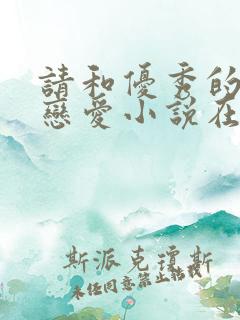 請和優秀的
戀愛小說在
斯派克瓊斯
未經同意禁止轉載